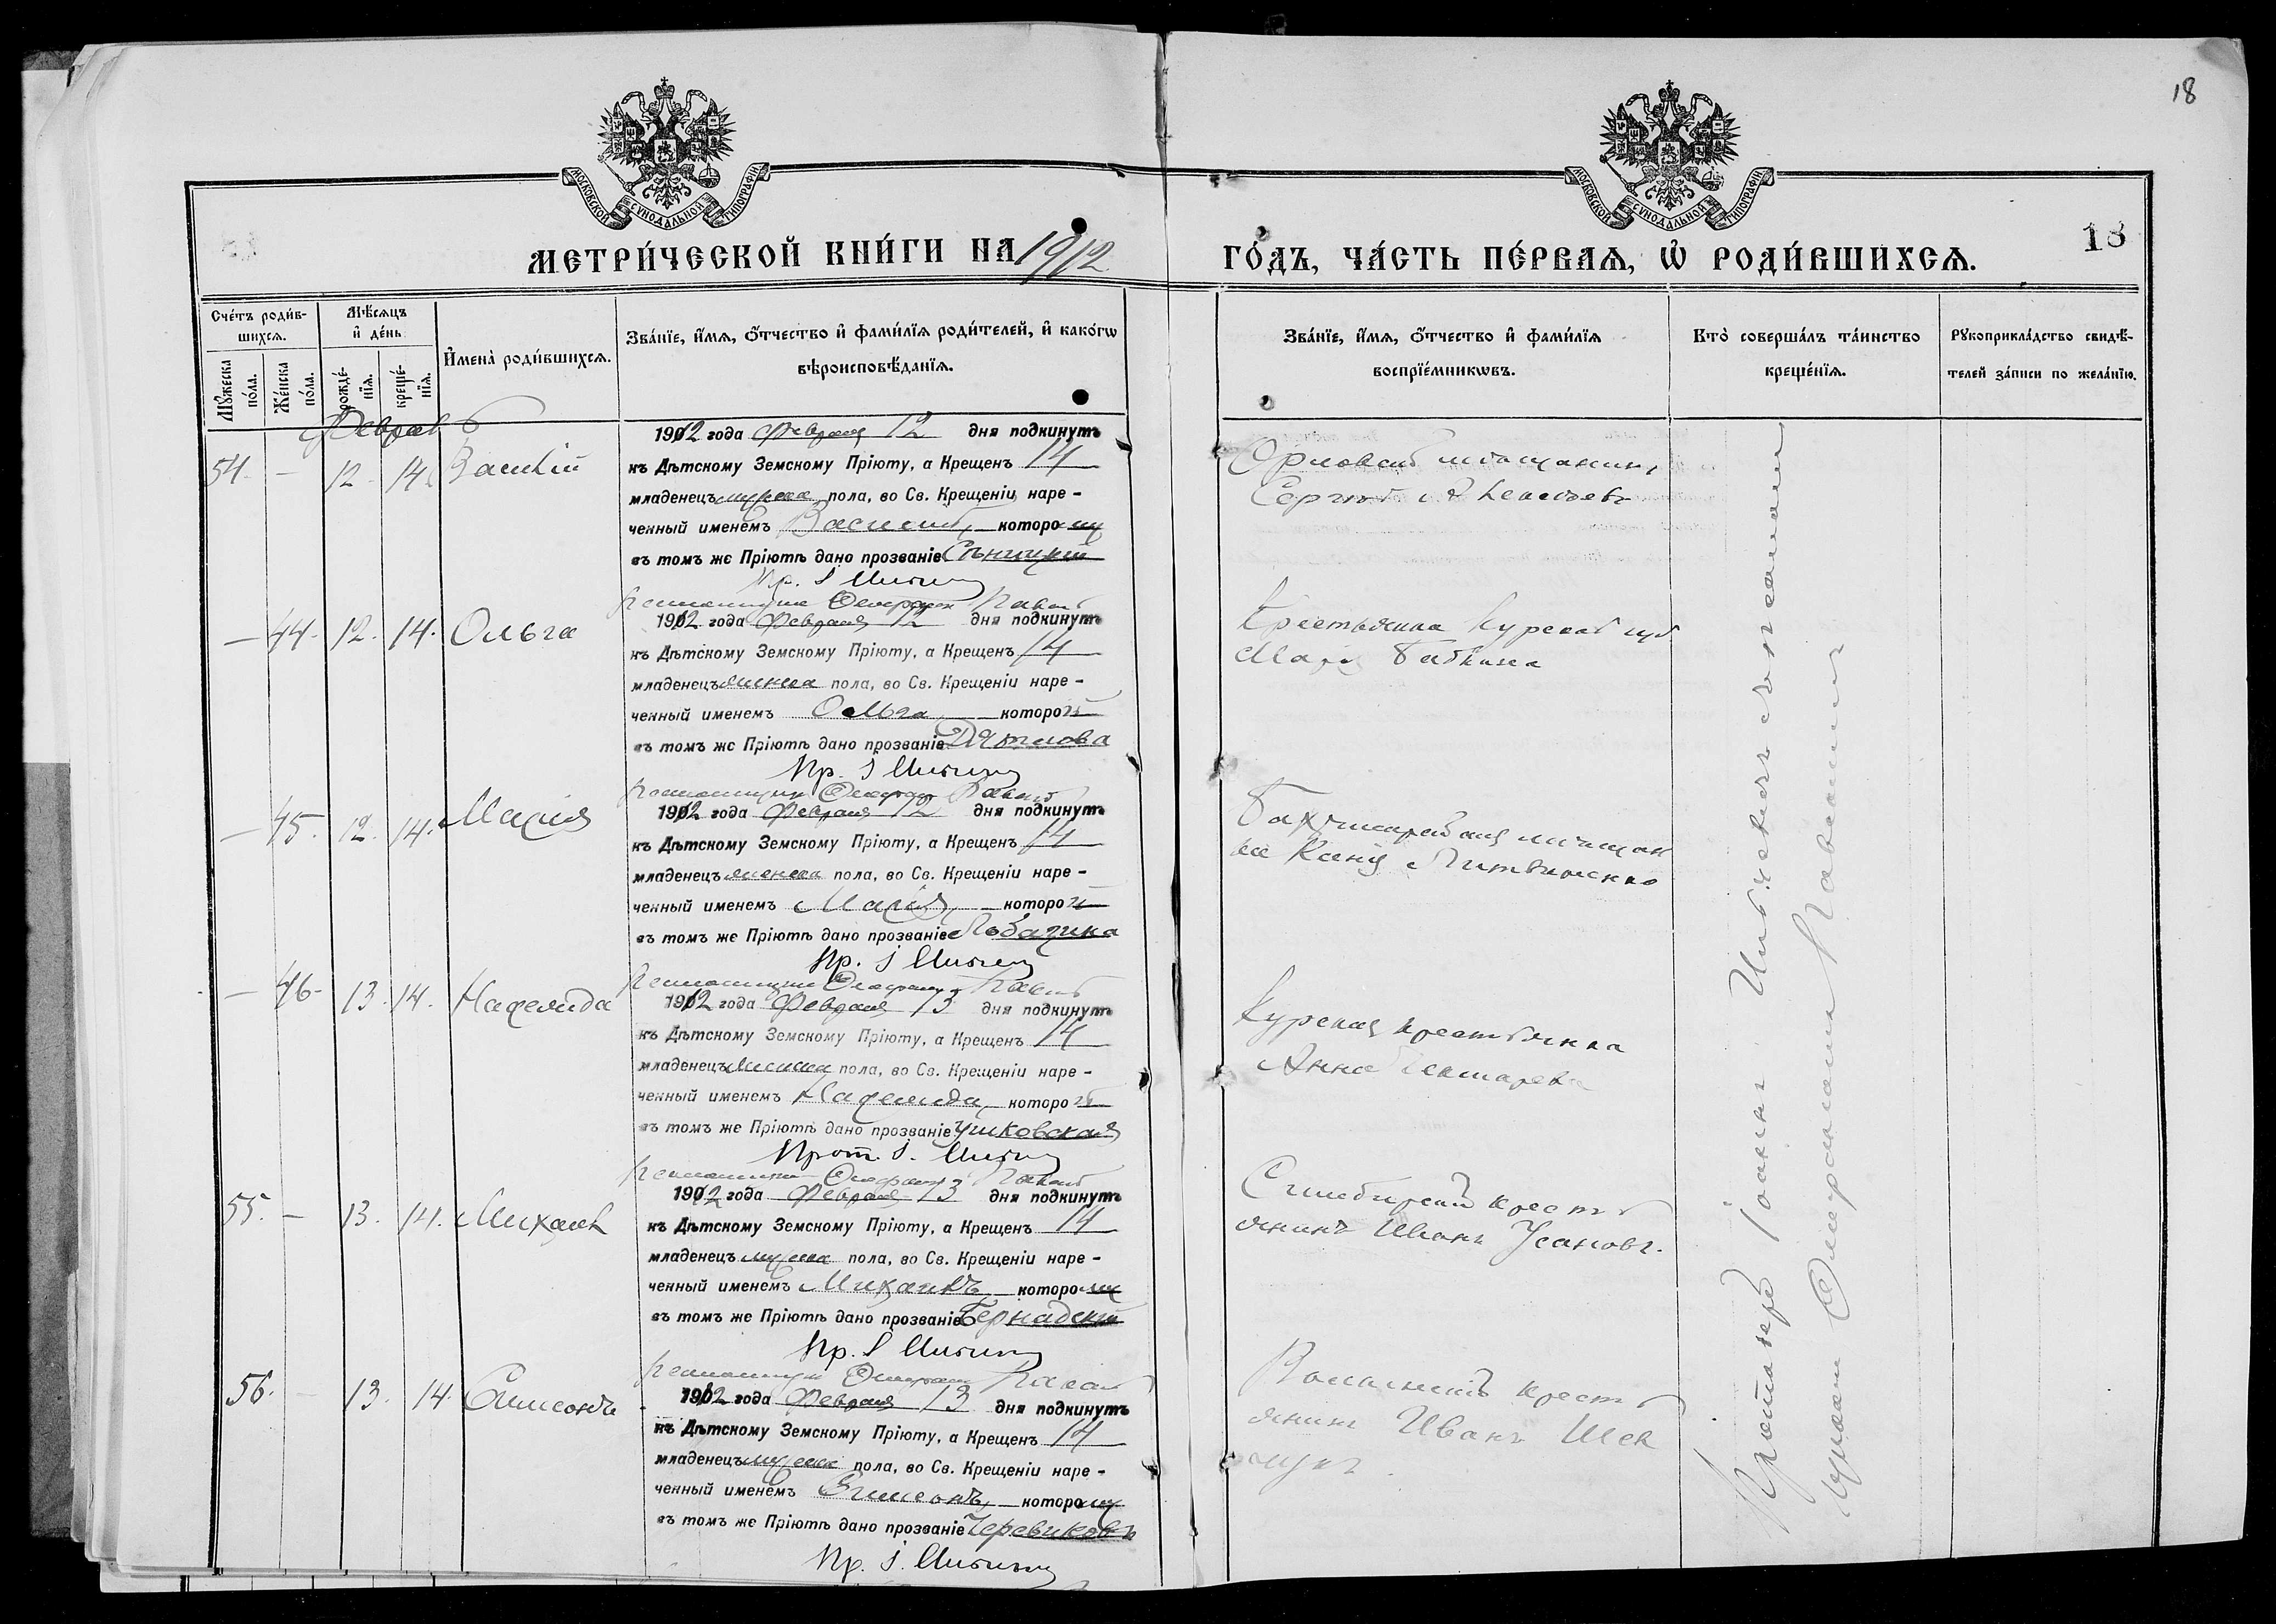 18
МОСКОВСКОЙ СѴНОДАЛЬНОЙ ТИПОГРАФІИ
МОСКОВСКОЙ СѴНОДАЛЬНОЙ ТИПОГРАФІИ
МЕТРИ́ЧЕСКОЙ КНИ́ГИ НА 1912
ГО́ДЪ, ЧА́СТЬ ПЕ́РВАЯ, Ѡ РОДИ́ВШИХСЯ.
18
Счéтъ роди́в-
шихся.
Мꙋ́жеска по́ла.
Же́нска по́ла.
Мѣ́сяцъ
и҆ де́нь
рожде́-нїя.
креще́-нїя.
И҆мена̀ роди́вшихся.
Зва́нїе, и҆́мя, ѻ҆́тчество и҆ фами́лїя роди́телей, и҆ како́гѡ
вѣроисповѣ́данїя.
Зва́нїе, и҆́мя, ѻ҆́тчество и҆ фами́лїя
воспрїе́мникѡвъ.
Кто̀ соверша́лъ та́инство
креще́нїя.
Рꙋкоприкла́дство свидѣ́-
телей за́писи по жела́нїю.
Февраль
54. — 12. 14. Василій
1912 года Февраля 12 дня подкинутъ
къ Дѣтскому Земскому Пріюту, а Крещенъ 14
младенецъ мужска пола, во Св. Крещеніи наре-
ченный именемъ Василій, которому
въ томъ же Пріютѣ дано прозваніе
Орловскій мѣщанинъ
Сергѣй
— 44. 12. 14. Ольга
1912 года Февраля 12 дня подкинутъ
къ Дѣтскому Земскому Пріюту, а Крещенъ 14
младенецъ женска пола, во Св. Крещеніи наре-
ченный именемъ Ольга которой
въ томъ же Пріютѣ дано прозваніе Дятлова
Крестьянка Курской губ
Марія Бабкина
— 45. 12. 14. Марія
1912 года Февраля 12 дня подкинутъ
къ Дѣтскому Земскому Пріюту, а Крещенъ 14
младенецъ женска пола, во Св. Крещеніи наре-
ченный именемъ Марія, которой
въ томъ же Пріютѣ дано прозваніе Лобазина
Бахчисарайская мѣщан
ка Ксенія Литвиненко
— 46. 13. 14. Надежда
1912 года Февраля 13 дня подкинутъ
къ Дѣтскому Земскому Пріюту, а Крещенъ 14
младенецъ женска пола, во Св. Крещеніи наре-
ченный именемъ Надежда, которой
въ томъ же Пріютѣ дано прозваніе Ушковская
Курская крестьянка
Анна
55. — 13. 14. Михаилъ
1912 года Февраля 13 дня подкинутъ
къ Дѣтскому Земскому Пріюту, а Крещенъ 14
младенецъ мужска пола, во Св. Крещеніи наре-
ченный именемъ Михаилъ, которому
въ томъ же Пріютѣ дано прозваніе Бернадскій
Симбирскій кресть
янинъ Иванъ Усановъ.
56. — 13. 14. Симеонъ
1912 года Февраля 13 дня подкинутъ
къ Дѣтскому Земскому Пріюту, а Крещенъ 14
младенецъ мужска пола, во Св. Крещеніи наре-
ченный именемъ Симеонъ, которому
въ томъ же Пріютѣ дано прозваніе Черевиковъ
Волынскій кресть
янинъ Иванъ Шев
чукъ.
Протоіерей Іоаннъ